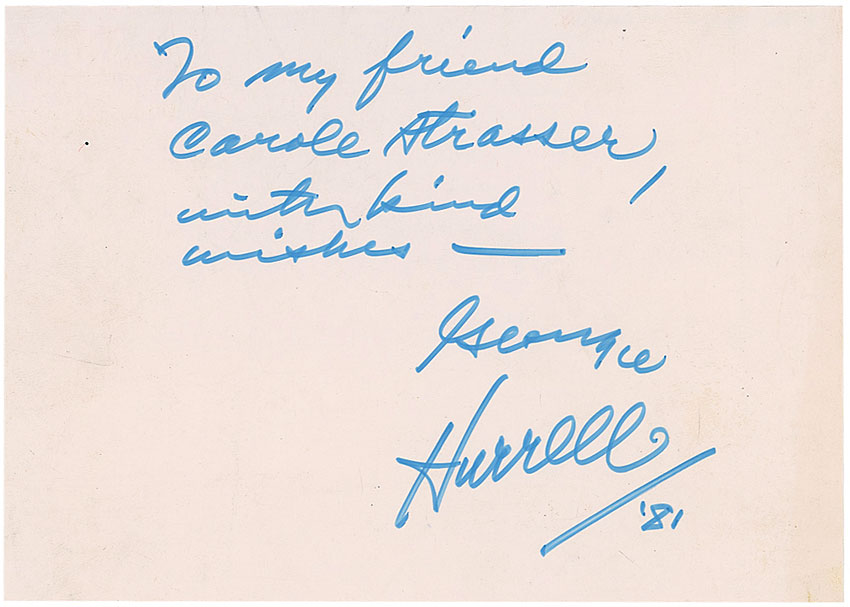 To my friend
Carole Strasser,
with kind
wishes —
George
Hurrell
'81